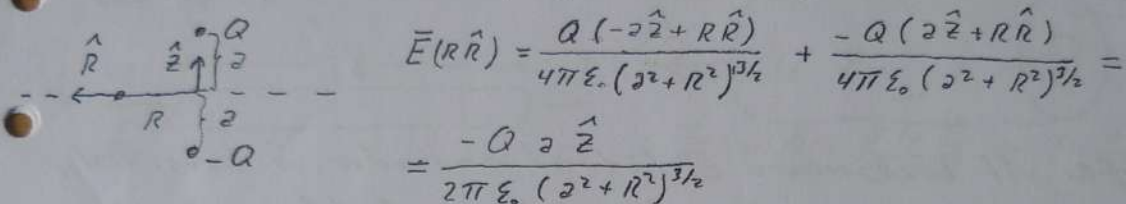 Q
R̂ ẑ a
R a
-Q
Ē(RR̂) = Q(-aẑ + RR̂) / 4πε₀(a² + R²)^3/2 + -Q(aẑ + RR̂) / 4πε₀(a² + R²)^3/2 =
= -Q a ẑ / 2πε₀(a² + R²)^3/2